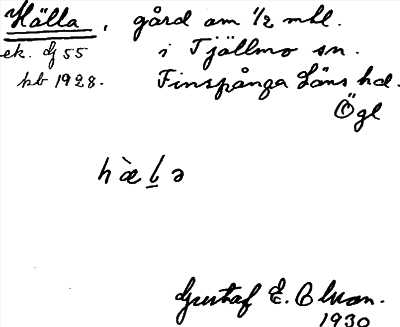 Hälla, gård om ½ mtl.
ek. dj 55 i Tjällmo sn.
kb 1928. Finspånga Läns hd.
Ögl
hæ̀lə
Gustaf E. Olsson.
1930